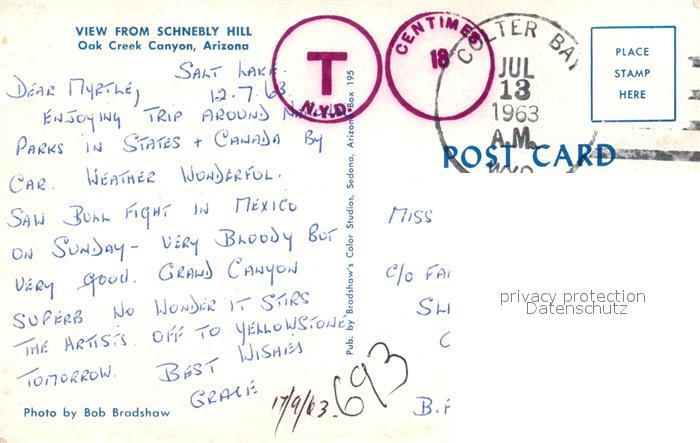 VIEW FROM SCHNEBLY HILL
Oak Creek Canyon, Arizona
SALT LAKE.
12.7.63
DEAR MYRTLE,
ENJOYING TRIP AROUND
PARKS IN STATES + CANADA BY
CAR. WEATHER WONDERFUL.
SAW BULL FIGHT IN MEXICO
ON SUNDAY - VERY BLOODY BUT
VERY GOOD. GRAND CANYON
SUPERB NO WONDER IT STIRS
THE ARTISTS. OFF TO YELLOWSTONE
TOMORROW. BEST WISHES
GRACE
Photo by Bob Bradshaw
17/9/63
693
Pub. by Bradshaw's Color Studios, Sedona, Arizona Box 195
T
N.Y.D.
CENTIMES
18
COLTER BAY
JUL
13
1963
A.M.
WYO
PLACE
STAMP
HERE
POST CARD
MISS
C/O FA
SL
C
B.F
privacy protection
Datenschutz